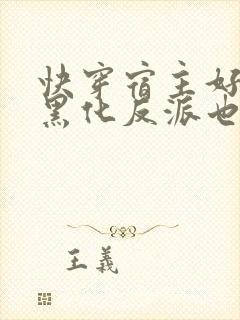 快穿宿主好
黑化反派也
王義